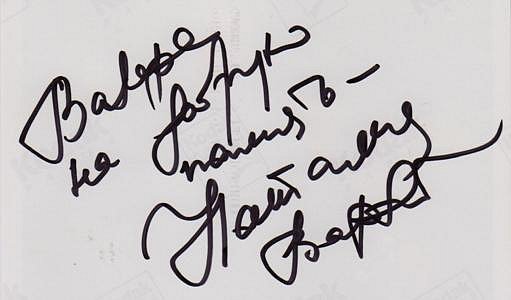 Валере
на добрую
память –
Наталья
Вар